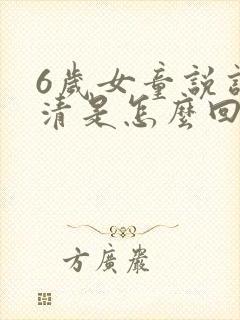 6歲女童說
清是怎麼回
方廣嚴